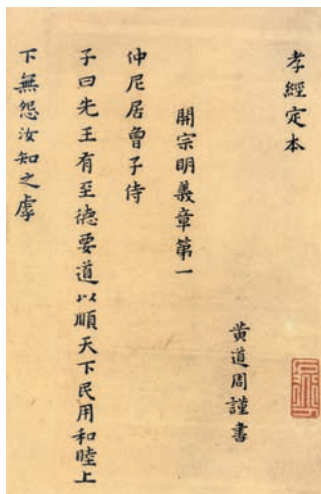 孝經定本
黃道周謹書
開宗明義章第一
仲尼居曾子侍
子曰先王有至德要道以順天下民用和睦上
下無怨汝知之虖